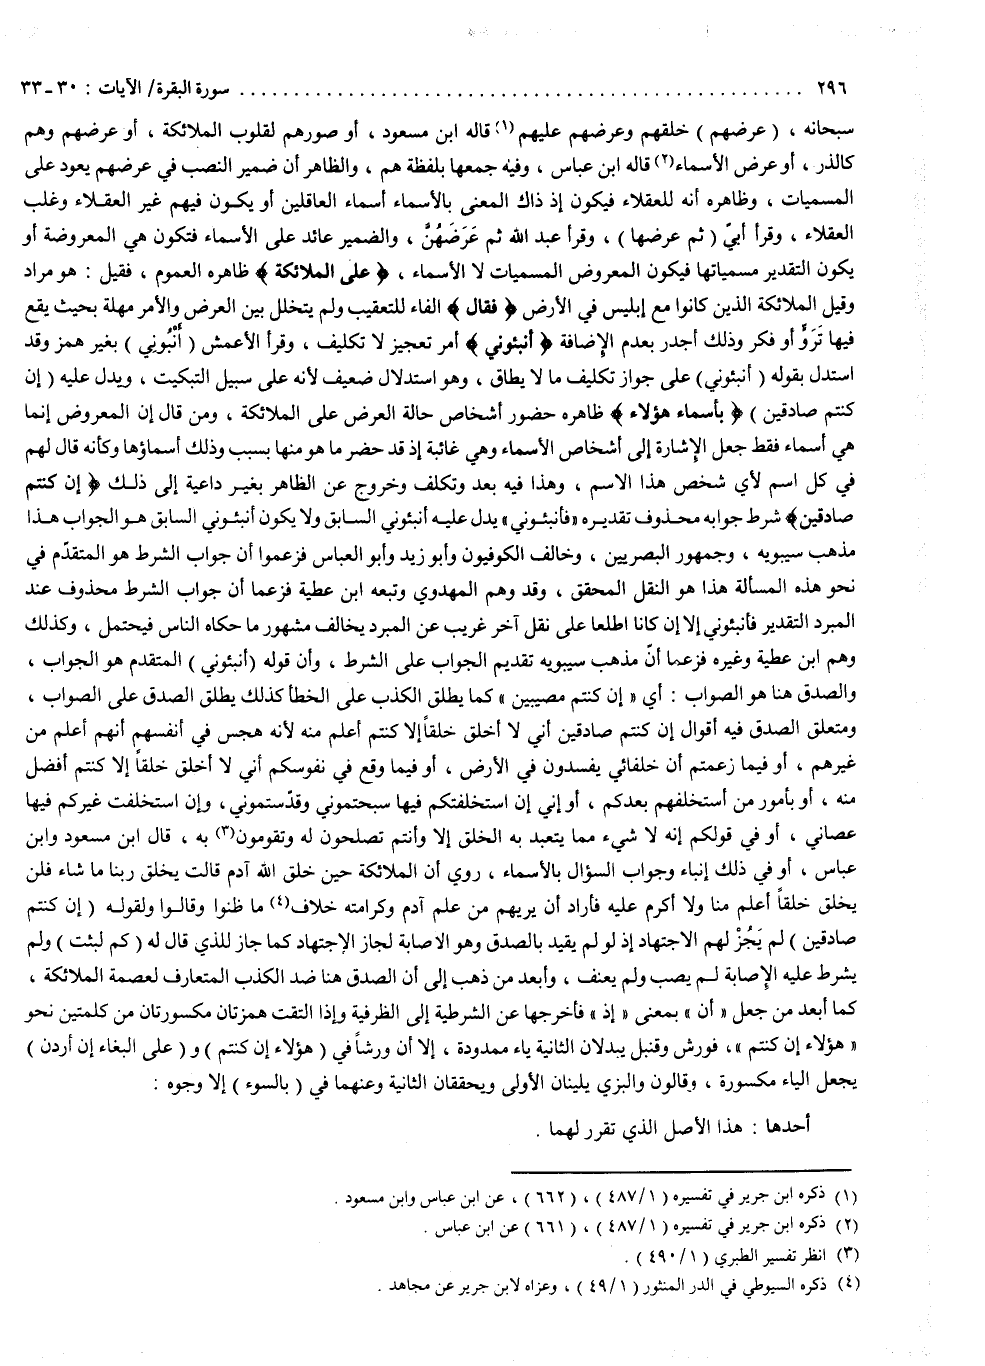 ٢٩٦ ................................................ سورة البقرة/ الآيات : ٣٠ ـ ٣٣
سبحانه ، ( عرضهم ) خلقهم وعرضهم عليهم(١) قاله ابن مسعود ، أو صورهم لقلوب الملائكة ، أو عرضهم وهم
كالذر ، أو عرض الأسماء(٢) قاله ابن عباس ، وفيه جمعها بلفظة هم ، والظاهر أن ضمير النصب في عرضهم يعود على
المسميات ، وظاهره أنه للعقلاء فيكون إذ ذاك المعنى بالأسماء أسماء العاقلين أو يكون فيهم غير العقلاء وغلب
العقلاء ، وقرأ أبيّ ( ثم عرضها ) ، وقرأ عبد الله ثم عَرَضَهُنَّ ، والضمير عائد على الأسماء فتكون هي المعروضة أو
يكون التقدير مسمياتها فيكون المعروض المسميات لا الأسماء ، ﴿ على الملائكة ﴾ ظاهره العموم ، فقيل : هو مراد
وقيل الملائكة الذين كانوا مع إبليس في الأرض ﴿ فقال ﴾ الفاء للتعقيب ولم يتخلل بين العرض والأمر مهلة بحيث يقع
فيها تَرَوٍّ أو فكر وذلك أجدر بعدم الإضافة ﴿ أنبئوني ﴾ أمر تعجيز لا تكليف ، وقرأ الأعمش ( أَنْبُونِي ) بغير همز وقد
استدل بقوله ( أنبئوني) على جواز تكليف ما لا يطاق ، وهو استدلال ضعيف لأنه على سبيل التبكيت ، ويدل عليه ( إن
كنتم صادقين ) ﴿ بأسماء هؤلاء ﴾ ظاهره حضور أشخاص حالة العرض على الملائكة ، ومن قال إن المعروض إنما
هي أسماء فقط جعل الإشارة إلى أشخاص الأسماء وهي غائبة إذ قد حضر ما هو منها بسبب وذلك أسماؤها وكأنه قال لهم
في كل اسم لأي شخص هذا الاسم ، وهذا فيه بعد وتكلف وخروج عن الظاهر بغير داعية إلى ذلك ﴿ إن كنتم
صادقين﴾ شرط جوابه محذوف تقديره «فأنبئوني» يدل عليه أنبئوني السابق ولا يكون أنبئوني السابق هو الجواب هذا
مذهب سيبويه ، وجمهور البصريين ، وخالف الكوفيون وأبو زيد وأبو العباس فزعموا أن جواب الشرط هو المتقدّم في
نحو هذه المسألة هذا هو النقل المحقق ، وقد وهم المهدوي وتبعه ابن عطية فزعما أن جواب الشرط محذوف عند
المبرد التقدير فأنبئوني إلا إن كانا اطلعا على نقل آخر غريب عن المبرد يخالف مشهور ما حكاه الناس فيحتمل ، وكذلك
وهم ابن عطية وغيره فزعما أنّ مذهب سيبويه تقديم الجواب على الشرط ، وأن قوله (أنبئوني ) المتقدم هو الجواب ،
والصدق هنا هو الصواب : أي « إن كنتم مصيبين » كما يطلق الكذب على الخطأ كذلك يطلق الصدق على الصواب ،
ومتعلق الصدق فيه أقوال إن كنتم صادقين أني لا أخلق خلقاً إلا كنتم أعلم منه لأنه هجس في أنفسهم أنهم أعلم من
غيرهم ، أو فيما زعمتم أن خلفائي يفسدون في الأرض ، أو فيما وقع في نفوسكم أني لا أخلق خلقاً إلا كنتم أفضل
منه ، أو بأمور من أستخلفهم بعدكم ، أو إني إن استخلفتكم فيها سبحتموني وقدّستموني، وإن استخلفت غيركم فيها
عصاني ، أو في قولكم إنه لا شيء مما يتعبد به الخلق إلا وأنتم تصلحون له وتقومون(٣) به ، قال ابن مسعود وابن
عباس ، أو في ذلك إنباء وجواب السؤال بالأسماء ، روي أن الملائكة حين خلق الله آدم قالت يخلق ربنا ما شاء فلن
يخلق خلقاً أعلم منا ولا أكرم عليه فأراد أن يريهم من علم آدم وكرامته خلاف(٤) ما ظنوا وقالوا ولقوله ( إن كنتم
صادقين ) لم يَجُزْ لهم الاجتهاد إذ لو لم يقيد بالصدق وهو الاصابة لجاز الإجتهاد كما جاز للذي قال له ( كم لبثت ) ولم
يشرط عليه الإصابة لم يصب ولم يعنف ، وأبعد من ذهب إلى أن الصدق هنا ضد الكذب المتعارف لعصمة الملائكة ،
كما أبعد من جعل « أن » بمعنى « إذ » فأخرجها عن الشرطية إلى الظرفية وإذا التقت همزتان مكسورتان من كلمتين نحو
« هؤلاء إن كنتم »، فورش وقنبل يبدلان الثانية ياء ممدودة ، إلا أن ورشاً في ( هؤلاء إن كنتم ) و ( على البغاء إن أردن )
يجعل الياء مكسورة ، وقالون والبزي يلينان الأولى ويحققان الثانية وعنهما في ( بالسوء ) إلا وجوه :
أحدها : هذا الأصل الذي تقرر لهما .
(١) ذكره ابن جرير في تفسيره ( ٤٨٧/١ ) ، ( ٦٦٢ ) ، عن ابن عباس وابن مسعود .
(٢) ذكره ابن جرير في تفسيره ( ٤٨٧/١ ) ، ( ٦٦١ ) عن ابن عباس .
(٣) انظر تفسير الطبري ( ٤٩٠/١ ) .
(٤) ذكره السيوطي في الدر المنثور ( ٤٩/١ ) ، وعزاه لابن جرير عن مجاهد .